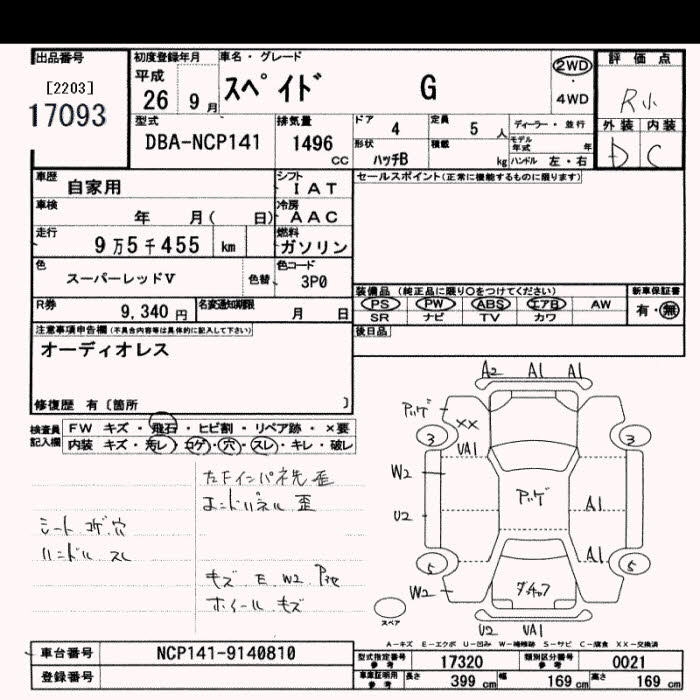 出品番号
[2203]
17093
初度登録年月
平成
26 9月
車名・グレード
スペイド G
2WD
・
4WD
評価点
R小
外装 内装
D C
型式
DBA-NCP141
排気量
1496
CC
ドア
4
定員
5 人
ディーラー・並行
形状
ハッチB
積載
kg
モデル年式 年
ハンドル 左・右
車歴
自家用
シフト
I A T
車検
年 月( 日)
冷房
A A C
走行
9万5千455 km
燃料
ガソリン
色
スーパーレッドV
色替
色コード
3P0
R券
9,340円
名変通知期限
月 日
セールスポイント(正常に機能するものに限ります)
装備品 (純正品に限り○をつけてください)
PS PW ABS エアB AW
SR ナビ TV カワ
新車保証書
有・無
後日品
注意事項申告欄(不具合内容等は具体的に記入して下さい)
オーディオレス
修復歴 有〔箇所 〕
検査員記入欄
FW キズ・飛石・ヒビ割・リペア跡・×要
内装 キズ・汚レ・コゲ・穴・スレ・キレ・破レ
シート コゲ穴
ハンドル スレ
左Fインパネ先 歪
エンドパネル 歪
キズ E W2
ホイール キズ
A2 A1 A1
アツゲ
XX
VA1
3 3
W2
U2
アツゲ
A1
A1
5 5
W2
U2 VA1
スペア
A-キズ E-エクボ U-凹み W-補修跡 S-サビ C-腐食 XX-交換済
車台番号
NCP141-9140810
登録番号
型式指定番号
参考
17320
類別区分番号
参考
0021
車庫証明用
参考
長さ 399 cm
幅 169 cm
高さ 169 cm